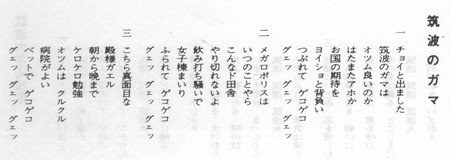 筑波のガマ
一 チョイと出ました
筑波のガマは
オツム良いのか
はたまたアホか
お国の期待を
ヨイショと背負い
つぶれて ゲコゲコ
グェッ グェッ グェッ
二 メガロポリスは
いつのことやら
こんなド田舎
やり切れないよ
飲み打ち騒いで
女子棟まいり
ふられて ゲコゲコ
グェッ グェッ グェッ
三 こちら真面目な
殿様ガエル
朝から晩まで
ケロケロ勉強
オツムは クルクル
病院がよい
ベットで ゲコゲコ
グェッ グェッ グェッ